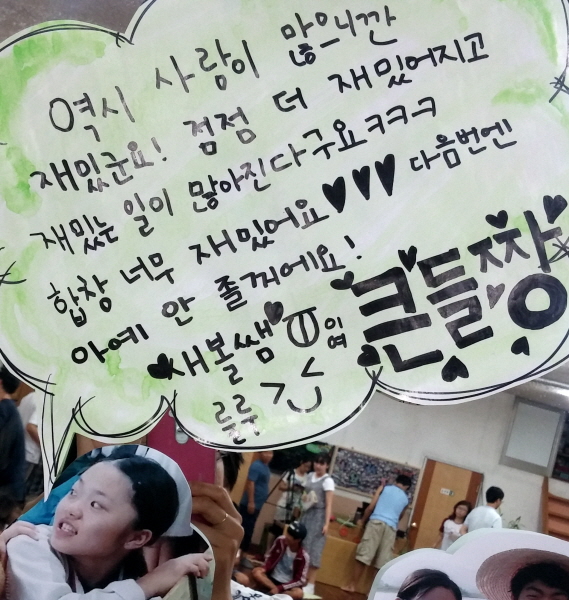 역시 사랑이 많으니깐
재밌군요! 점점 더 재밌어지고
재밌는 일이 많아진다구요ㅋㅋㅋ
합창 너무 재밌어요♥♥♥ 다음번엔
아예 안 졸꺼에요!
♥새볼쌤♥
룰루
큰들짱